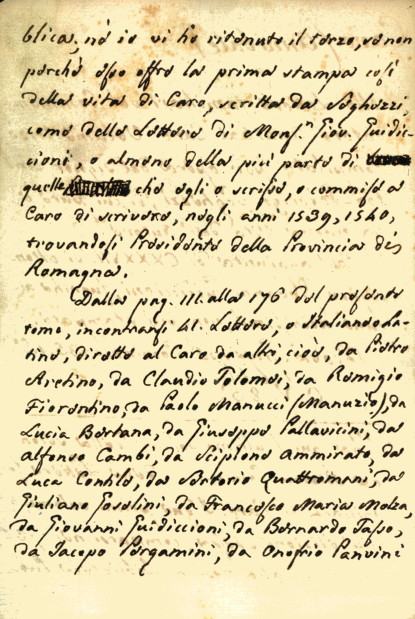 blica, nè io vi ho ritenuto il terzo, se non
perchè esso offre la prima stampa così
della vita di Caro, scritta da Seghezzi,
come delle Lettere di Monsr. Giov. Guidic-
cioni, o almeno della più parte di
quelle che egli o scrisse, o commise a
Caro di scrivere, negli anni 1539, 1540,
trovandosi Presidente della Provincia di
Romagna.
Dalla pag. III. alla 176 del presente
tomo, incontransi 41. Lettere, o Italiane o La-
tine, dirette al Caro da altri, cioè, da Pietro
Aretino, da Claudio Tolomei, da Remigio
Fiorentino, da Paolo Manucci (Manuzio), da
Lucia Bertana, da Giuseppe Pallavicini, da
Alfonso Cambi, da Scipione Ammirato, da
Luca Contile, da Sertorio Quattromani, da
Giuliano Goselini, da Francesco Maria Molza,
da Giovanni Guidiccioni, da Bernardo Tasso,
da Jacopo Pergamini, da Onofrio Panvini